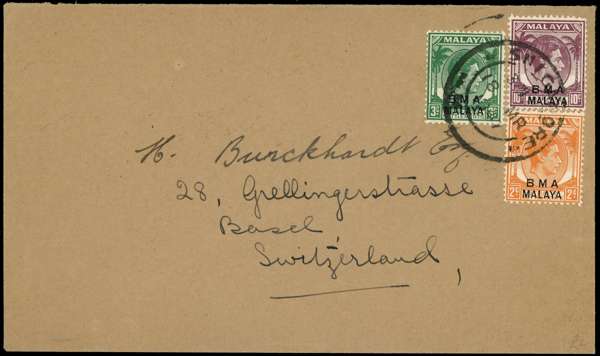 MALAYA
BMA
MALAYA
3c 3c
MALAYA
BMA
10c MALAYA 10c
SINGAPORE
18
BMA
2c MALAYA 2c
H. Burckhardt Esq
28, Grellingerstrasse
Basel
Switzerland,